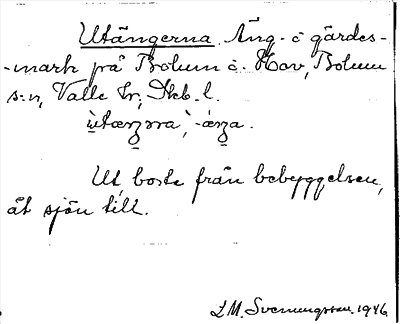 Utängerna. Äng- o gärdes-
-mark på Bolum o. Hov, Bolum
s:n, Valle hr; Skb. l.
Ut, borta från bebyggelsen,
åt sjön till.
L M. Svenungsson. 1946.